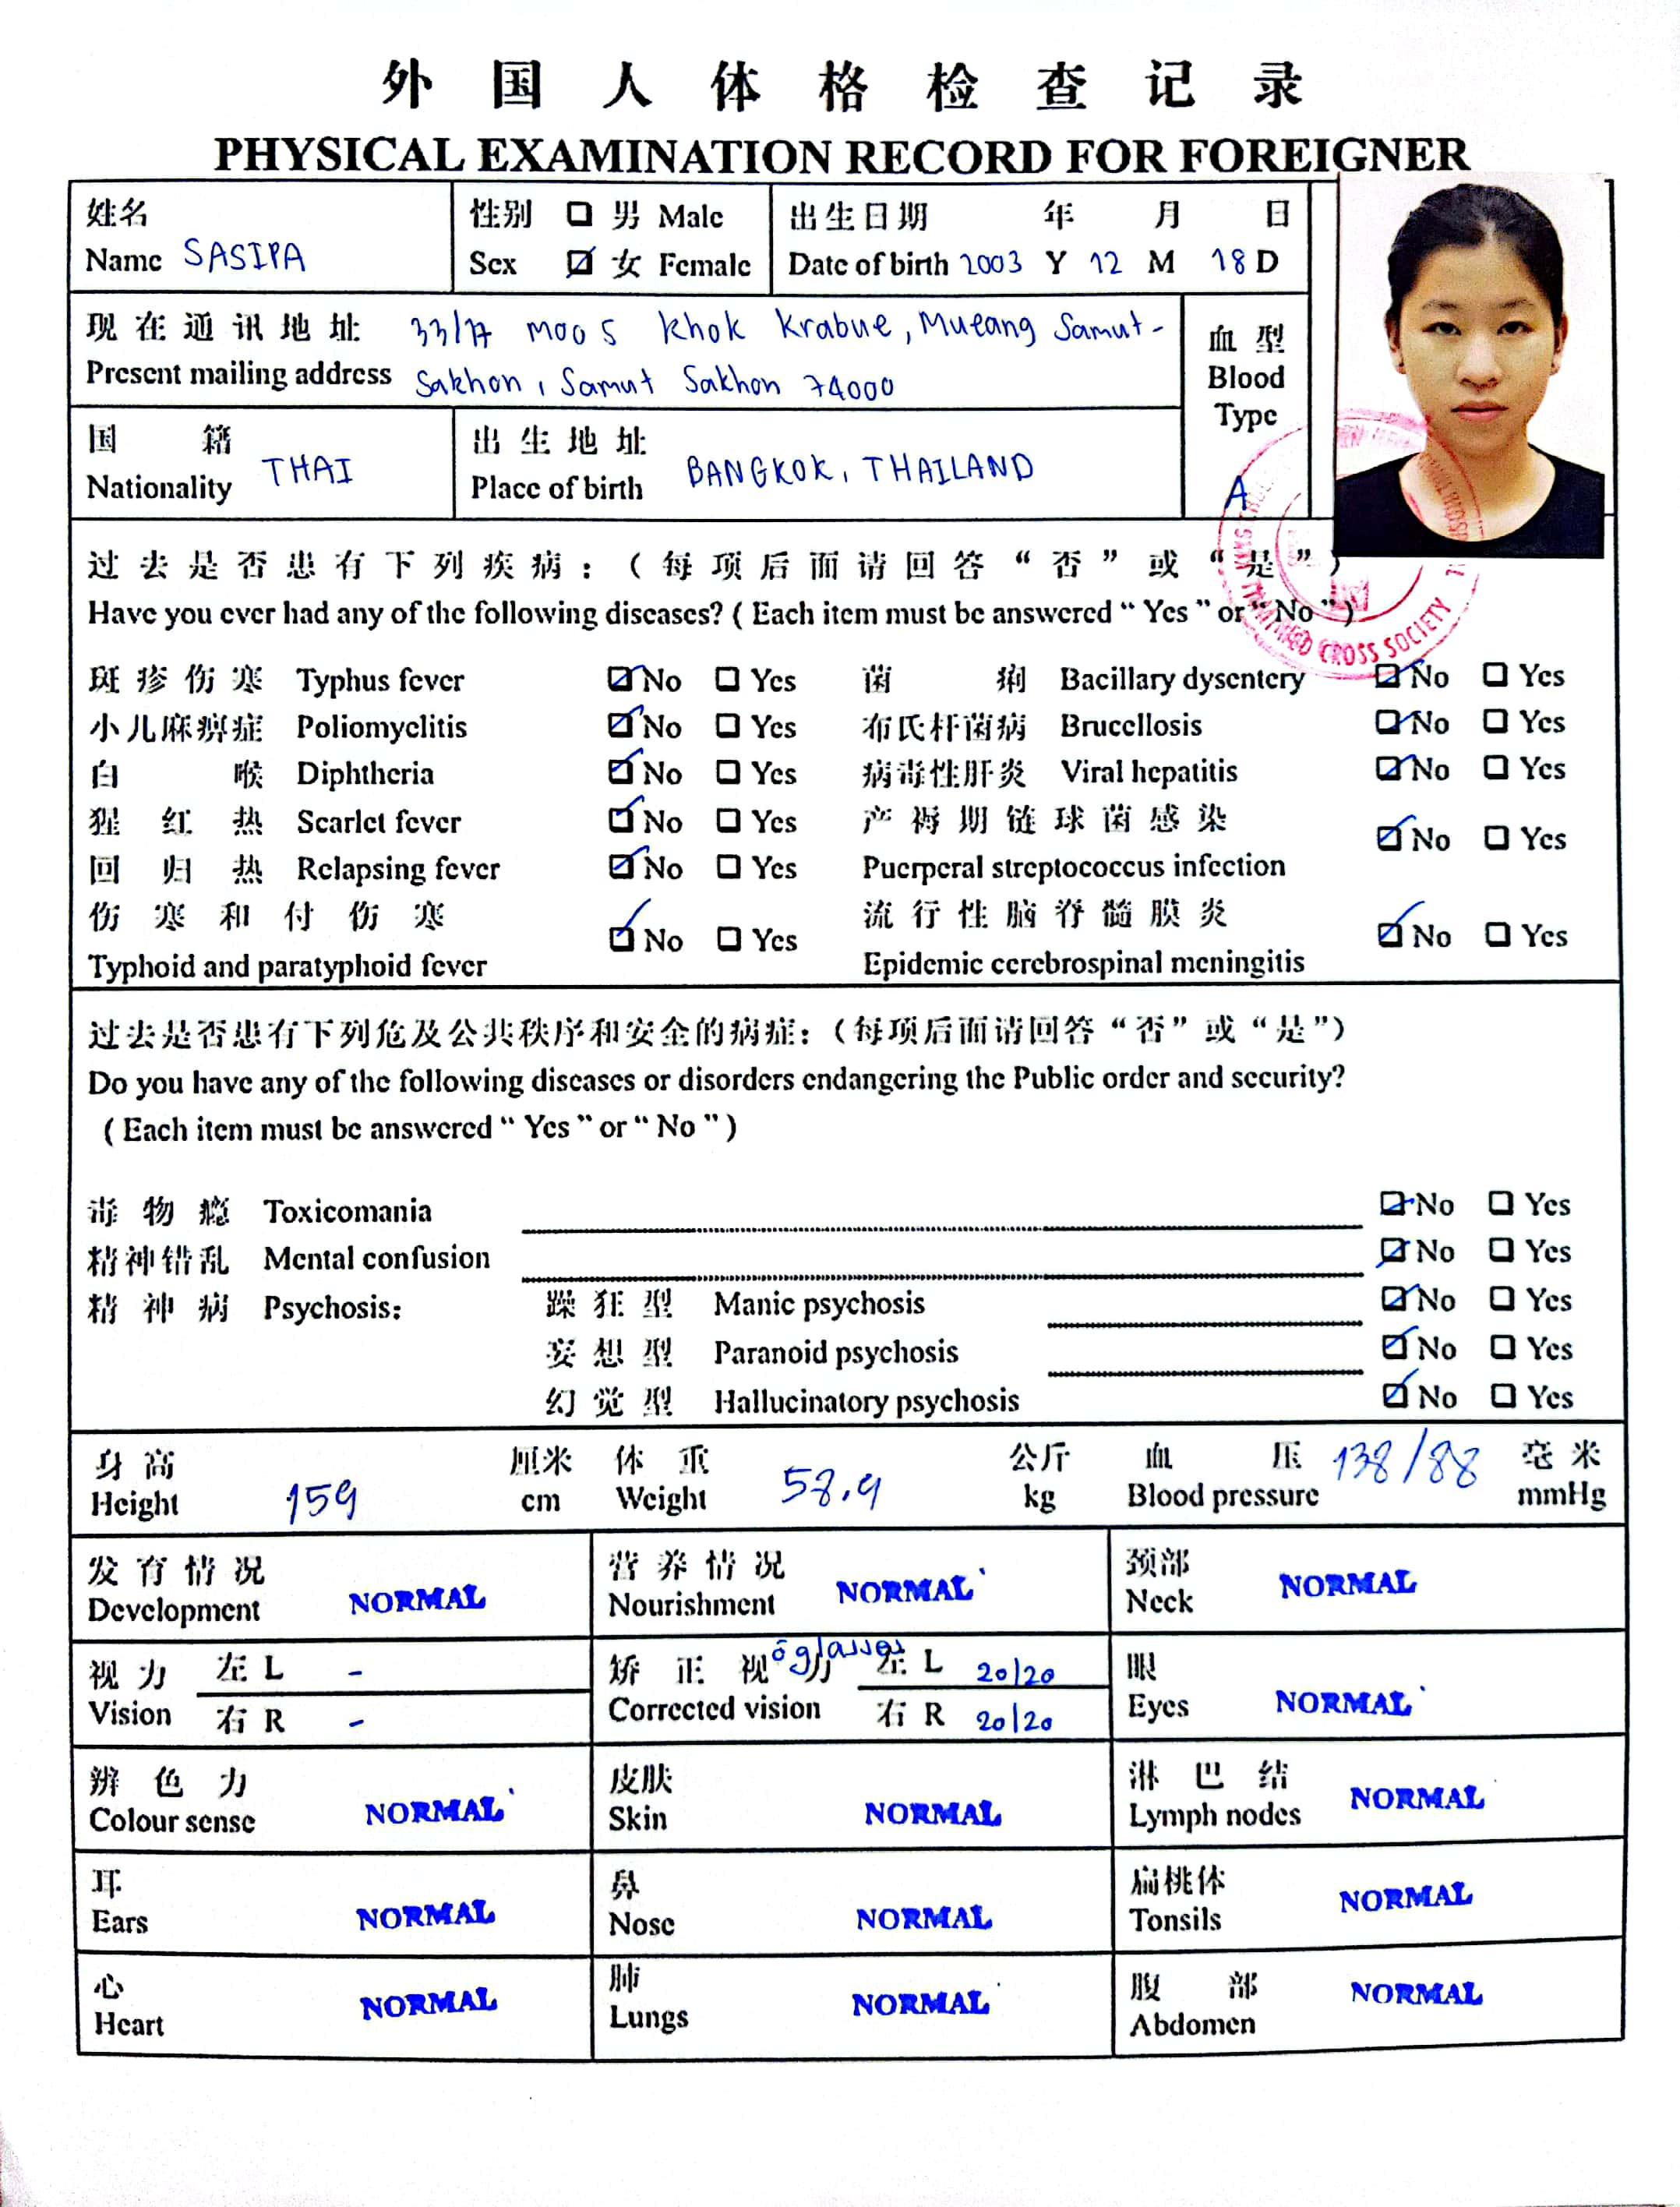 外国人体格检查记录
PHYSICAL EXAMINATION RECORD FOR FOREIGNER
姓名 性别 □ 男 Male 出生日期 年 月 日
Name SASIPA Sex ☑ 女 Female Date of birth 2003 Y 12 M 18 D
现在通讯地址 33/17 Moo 5 Khok Krabue, Mueang Samut-
Present mailing address Sakhon, Samut Sakhon 74000
血型
Blood
Type
A
国籍 出生地址
Nationality THAI Place of birth BANGKOK, THAILAND
THAI RED CROSS SOCIETY
过去是否患有下列疾病：（每项后面请回答“否”或“是”）
Have you ever had any of the following diseases? ( Each item must be answered “ Yes ” or “ No ” )
斑疹伤寒 Typhus fever ☑ No □ Yes 菌痢 Bacillary dysentery ☑ No □ Yes
小儿麻痹症 Poliomyelitis ☑ No □ Yes 布氏杆菌病 Brucellosis ☑ No □ Yes
白喉 Diphtheria ☑ No □ Yes 病毒性肝炎 Viral hepatitis ☑ No □ Yes
猩红热 Scarlet fever ☑ No □ Yes 产褥期链球菌感染
回归热 Relapsing fever ☑ No □ Yes Puerperal streptococcus infection ☑ No □ Yes
伤寒和付伤寒 流行性脑脊髓膜炎
Typhoid and paratyphoid fever ☑ No □ Yes Epidemic cerebrospinal meningitis ☑ No □ Yes
过去是否患有下列危及公共秩序和安全的病症：（每项后面请回答“否”或“是”）
Do you have any of the following diseases or disorders endangering the Public order and security?
( Each item must be answered “ Yes ” or “ No ” )
毒物瘾 Toxicomania ☑ No □ Yes
精神错乱 Mental confusion ☑ No □ Yes
精神病 Psychosis: 躁狂型 Manic psychosis ☑ No □ Yes
妄想型 Paranoid psychosis ☑ No □ Yes
幻觉型 Hallucinatory psychosis ☑ No □ Yes
身高 厘米 体重 公斤 血压 毫米
Height 159 cm Weight 58.9 kg Blood pressure 138/88 mmHg
发育情况 营养情况 颈部
Development NORMAL Nourishment NORMAL Neck NORMAL
视力 左 L - 矫正视力 c̄ glasses 左 L 20/20 眼
Vision 右 R - Corrected vision 右 R 20/20 Eyes NORMAL
辨色力 皮肤 淋巴结
Colour sense NORMAL Skin NORMAL Lymph nodes NORMAL
耳 鼻 扁桃体
Ears NORMAL Nose NORMAL Tonsils NORMAL
心 肺 腹部
Heart NORMAL Lungs NORMAL Abdomen NORMAL